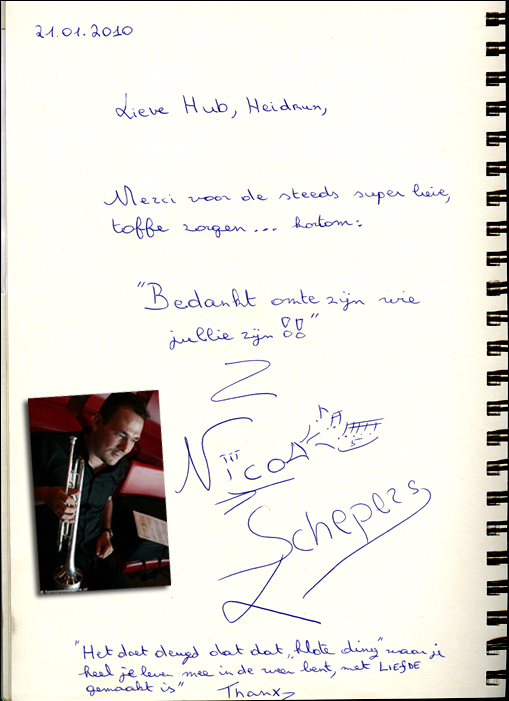 21.01.2010
Lieve Hub, Heidrun,
Merci voor de steeds super lieie,
toffe zorgen... kortom:
"Bedankt omte zijn wie
jullie zijn !!"
Nico
Schepers
"Het doet deugd dat dat „klote ding" waar je
heel je leven mee in de weer bent, met LIEfDE
gemaakt is"
Thanx